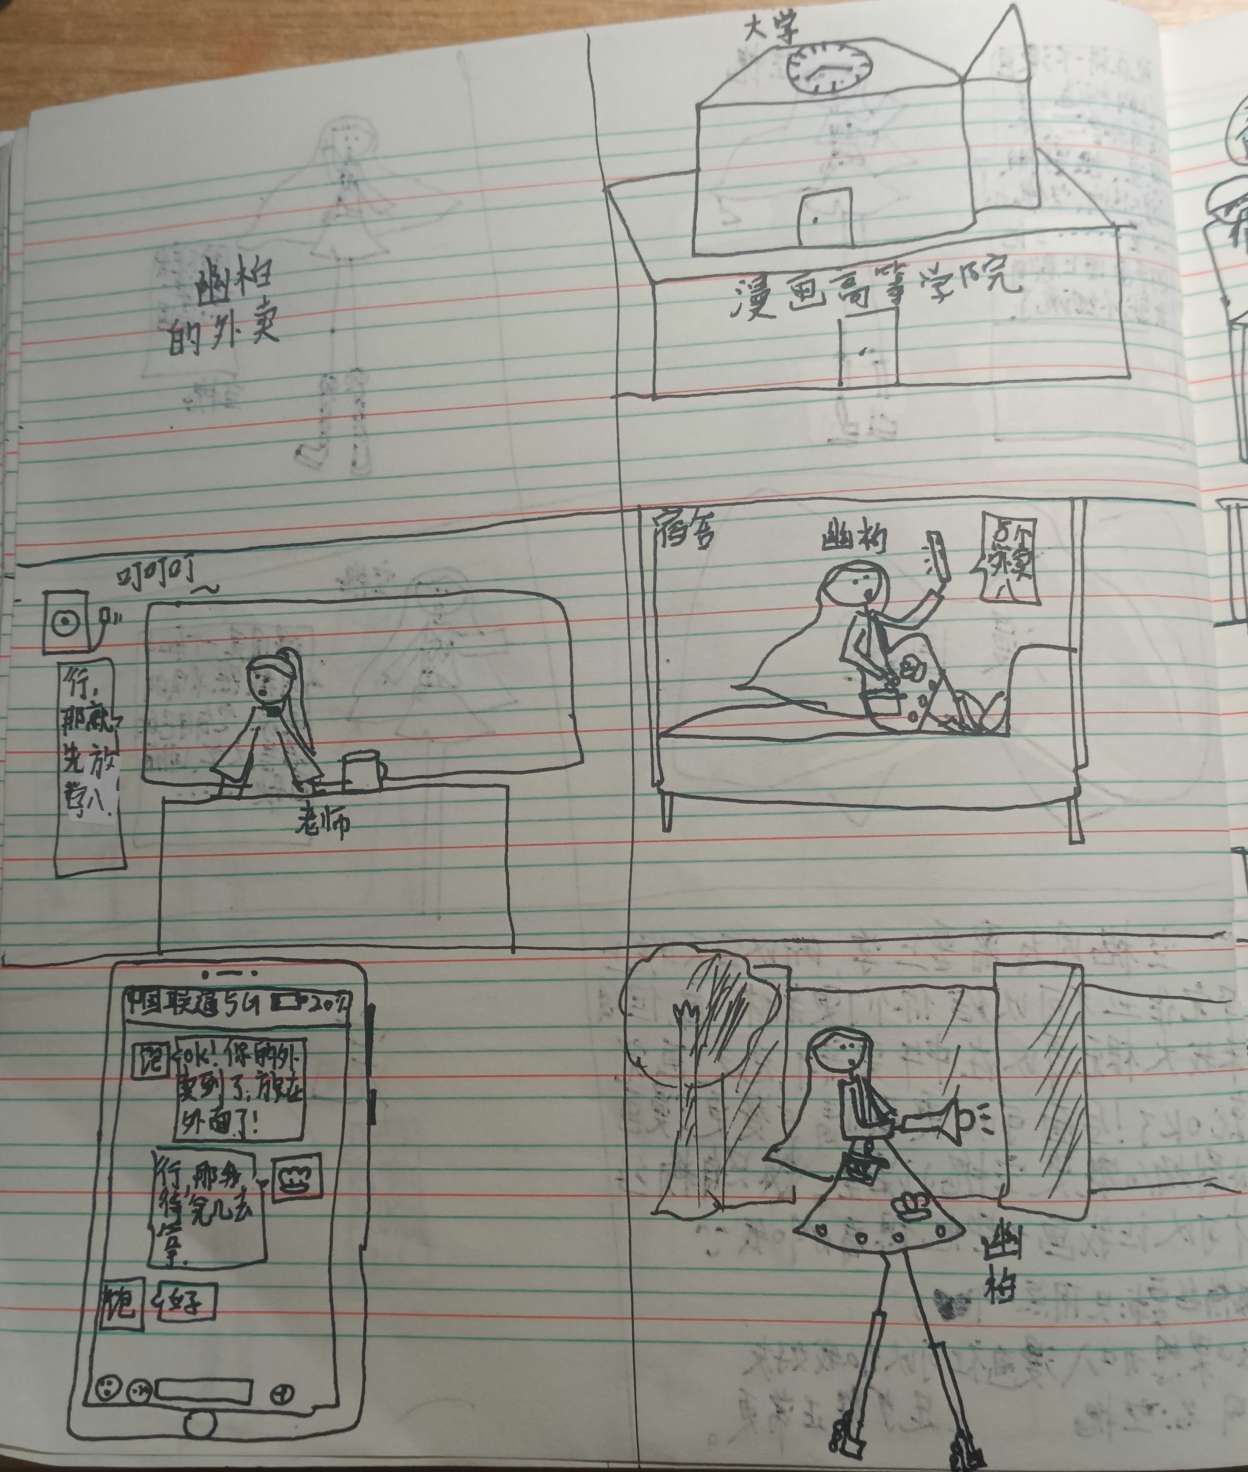 幽柏
的外卖
大学
漫画高等学院
叮叮叮~
行,
那就
先放
学八
老师
宿舍
幽柏
点个
外卖
八
中国联通5G 20%
饱
ok!你的外
卖到了,放在
外面了!
行,那我
待会儿去
拿.
饱
好
幽
柏